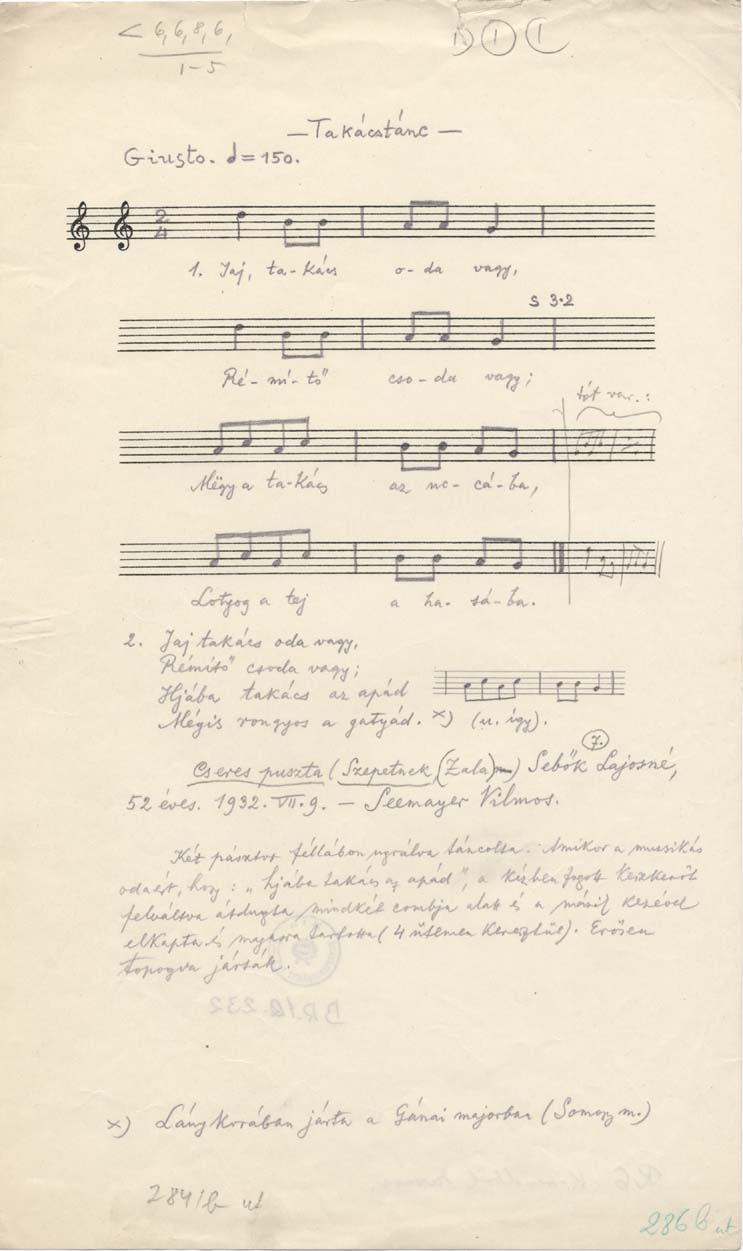 < 6,6,8,6,
1-5
— Takácstánc —
Giusto. d = 150.
2
4
1. Jaj, ta-kács o-da vagy,
S 3·2
Ré-mí-tő cso-da vagy;
tót var.:
Mëgy a ta-kács az uc-cá-ba,
Lotyog a tej a ha-sá-ba.
2. Jaj takács oda vagy,
Rémítő csoda vagy;
Hjába takács az apád
Mégis rongyos a gatyád. x) (u. így).
7.
Cseres puszta (Szepetnek (Zala m.) Sebők Lajosné,
52 éves. 1932. VII. 9. — Seemayer Vilmos.
Két pásztor féllábon ugrálva táncolta. Amikor a muzsikás
odaért, hogy: „hjába takács az apád", a kézben fogott keszkenőt
felváltva átdugta mindkét combja alatt és a másik kezével
elkapta és magasra tartotta (4 ütemen keresztül). Erősen
topogva járták.
BR/Q 232
x) Lánykorában járta a Gánai majorban (Somogy m.)
284/b ut
286 b ut